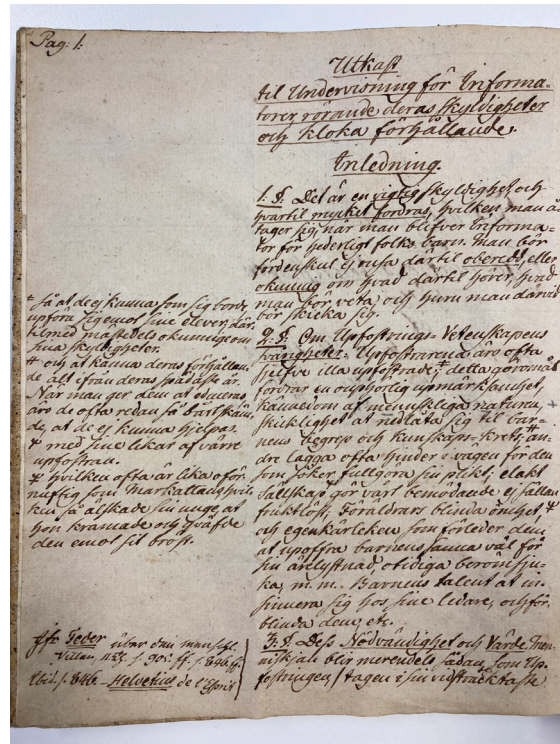 Pag: 1.
Utkast
til Undervisning för Informa-
torer rörande deras skyldigheter
och kloka förhållande.
Inledning.
1. §. Det är en vigtig skyldighet, och
hvartil mycket fordras, hvilken man å-
tager sig, när man blifver Informa-
tor för hederligt folks barn. Man bör
fördenskul ej rusa därtil oberedd, eller
okunnig om hvad därtil hörer, hvad
man bör veta, och huru man därvid
bör skicka sig.
2. §. Om Upfostrings-Vetenskapens
svårigheter. Upfostrarena äro ofta
sjelfve illa upfostrade ‡ detta göromål
fordrar en ouphörlig upmärksamhet,
kännedom af menniskliga naturen,
skicklighet at nedlåta sig til bar-
nens begrep och kunskaps-krets, an-
dre lägga ofta hinder i vägen för den
som söker fullgöra sin plikt, elakt
Sällskap gör vart bemödande ej sällan
fruktlöst. Föräldrars blinda ömhet
och egenkärleken som förleder dem
at upoffra barnens sanna väl för
sin ärelystnad, otidiga berömsju-
ka, m. m. Barnens talent at in-
sinuera sig hos sine ledare, och för-
blinda dem, etc.
3. §. Dess Nödvändighet och Värde. Men-
niskjan blir merendels sådan, som Up-
fostringen (tagen i sin vidsträcktaste
‡ så at de ej kunna som sig borde
upföra sig emot sine elever, där-
til med mästedels okunnige om
sina skyldigheter.
# och at känna deras förhållan-
de alt ifrån deras spädaste år.
När man ger dem at educeras,
äro de ofta redan så bortskäm-
de, at de ej kunna hjelpas.
med sine likar af värre
upfostran.
hvilken ofta är lika oför-
nuftig som Markattans, hvil-
ken så älskade sin unge, at
hon kramade och qväfde
den emot sit bröst.
Cfr. Feder über den menschl.
Willen, s. 90. ff. s. 846 ff.
Ibid. s. 846 – Helvetius de l'Esprit